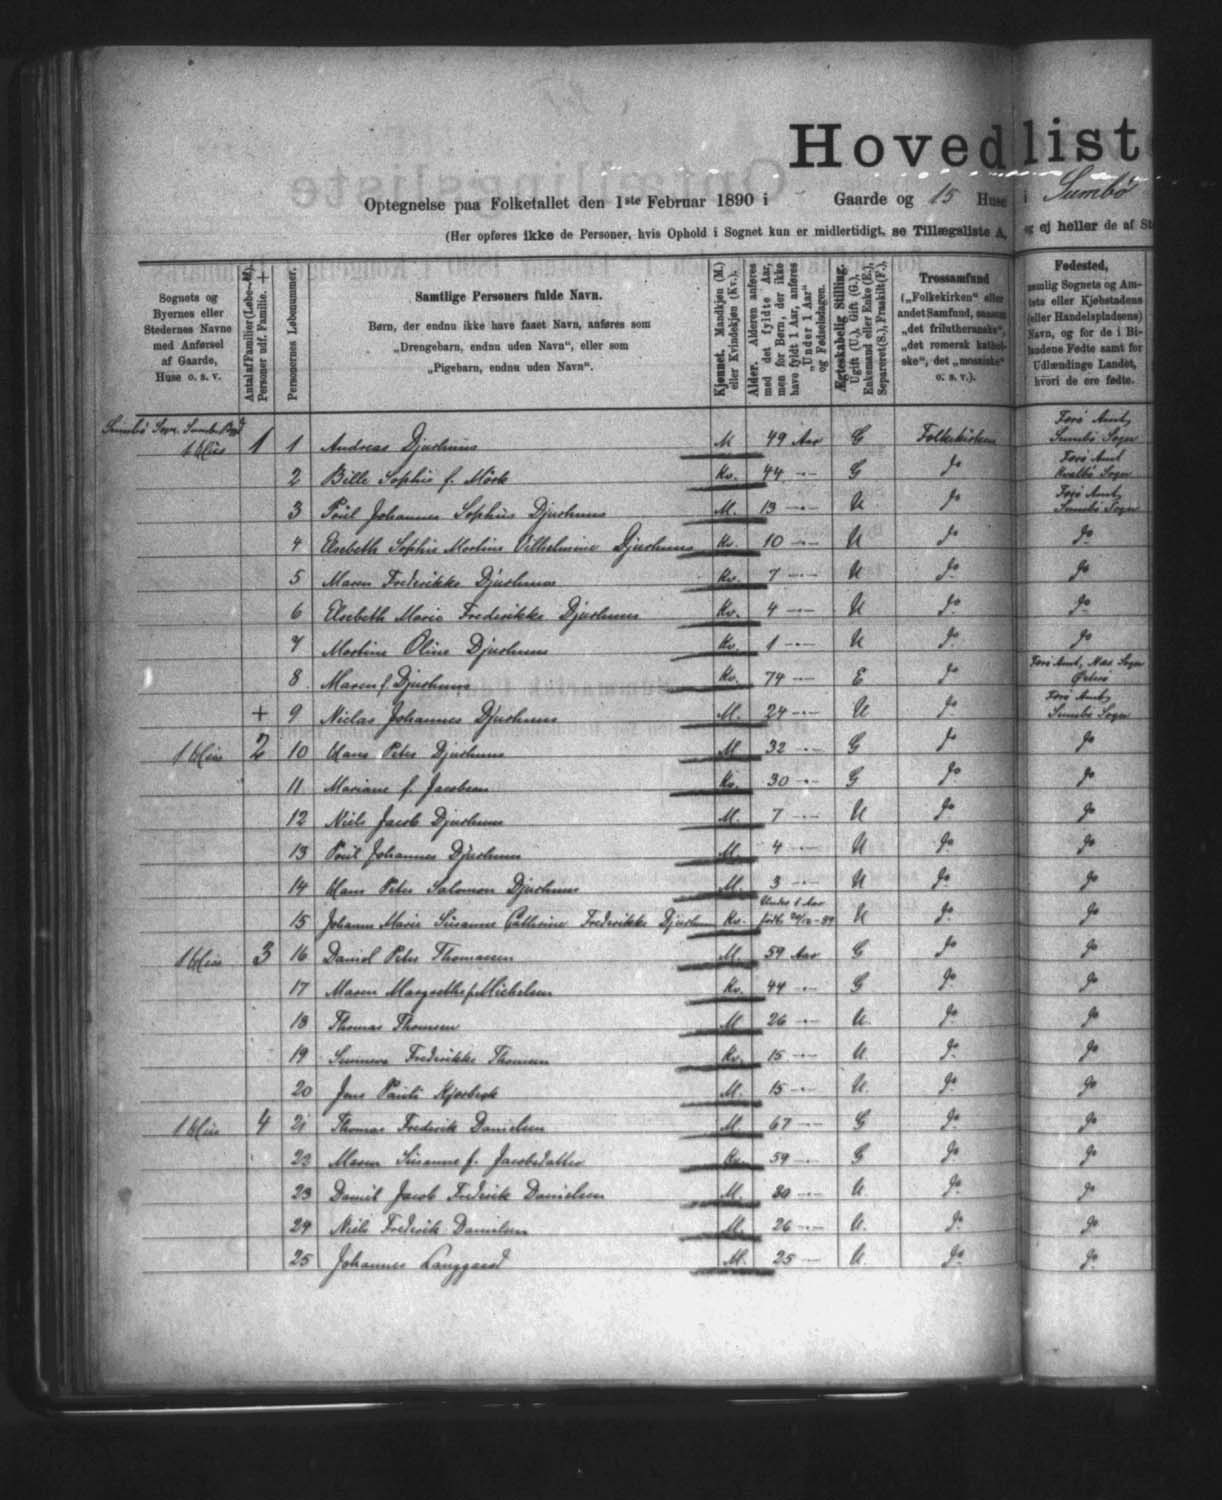 Hovedliste
Optegnelse paa Folketallet den 1ste Februar 1890 i - Gaarde og 15 Huse i Sumbø
(Her opføres ikke de Personer, hvis Ophold i Sognet kun er midlertidigt, se Tillægsliste A, og ej heller de af St
Sognets og Byernes eller Stedernes Navne med Anførsel af Gaarde, Huse o. s. v.
Antal af Familier (Løbe-№). Personer udf. Familie. +
Personernes Løbenummer.
Samtlige Personers fulde Navn.
Børn, der endnu ikke have faaet Navn, anføres som
„Drengebarn, endnu uden Navn“, eller som
„Pigebarn, endnu uden Navn“.
Kjønnet. Mandkjøn (M.) eller Kvindekjøn (Kv.).
Alder. Alderen anføres med det fyldte Aar, men for Børn, der ikke have fyldt 1 Aar, anføres „Under 1 Aar“ og Fødselsdagen.
Ægteskabelig Stilling. Ugift (U.), Gift (G.), Enkemand eller Enke (E.), Separeret (S.), Fraskilt (F.).
Trossamfund („Folkekirken“ eller andet Samfund, saasom „det frilutheranske“, „det romersk katholske“, det „mosaiske“ o. s. v.).
Fødested, nemlig Sognets og Amtets eller Kjøbstadens (eller Handelspladsens) Navn, og for de i Bilandene Fødte samt for Udlændinge Landet, hvori de ere fødte.
Sumbø Sogn
1 Hus 1 1 Andreas Djurhuus M 49 Aar G Folkekirken Færø Amt, Sumbø Sogn
2 Bille Sophie f. Mörk Kv. 44 -"- G do Færø Amt Kvalbø Sogn
3 Poül Johannes Sophüs Djurhuus M. 13 -"- U do Færø Amt, Sumbø Sogn
4 Elsebeth Sophie Martine Vilhelmine Djurhuus Kv. 10 -"- U do do
5 Maren Frederikke Djurhuus Kv. 7 -"- U do do
6 Elsebeth Marie Frederikke Djurhuus Kv. 4 -"- U do do
7 Martine Oline Djurhuus Kv. 1 -"- U do do
8 Maren f. Djurhuus Kv. 74 -"- E do Færø Amt, Næs Sogn Østerø
+ 9 Niclas Johannes Djurhuus M. 24 -"- U do Færø Amt, Sumbø Sogn
1 Hus 2 10 Hans Peter Djurhuus M. 32 -"- G do do
11 Mariane f. Jacobsen Kv. 30 -"- G do do
12 Niels Jacob Djurhuus M. 7 -"- U do do
13 Poul Johannes Djurhuus M. 4 -"- U do do
14 Hans Peter Salomon Djurhuus M. 3 -"- U do do
15 Johanne Marie Süsanne Cathrine Frederikke Djurh Kv. Under 1 Aar født /12-89 U do do
1 Hus 3 16 Daniel Peter Thomasen M. 59 Aar G do do
17 Maren Margrethe f. Michelsen Kv. 44 -"- G do do
18 Thomas Thomsen M 26 -"- U. do do
19 Sunneva Frederikke Thomsen Kv. 15 -"- U do do
20 Jens Pauli Kjærbæk M. 15 -"- U. do do
1 Hus 4 21 Thomas Frederik Danielsen M. 67 -"- G do do
22 Maren Süsanne f. Jacobsdatter Kv. 59 -"- G do do
23 Daniel Jacob Frederik Danielsen M. 30 -"- U. do do
24 Niels Frederik Danielsen M. 26 -"- U. do do
25 Johannes Langgaard M. 25 -"- U. do do